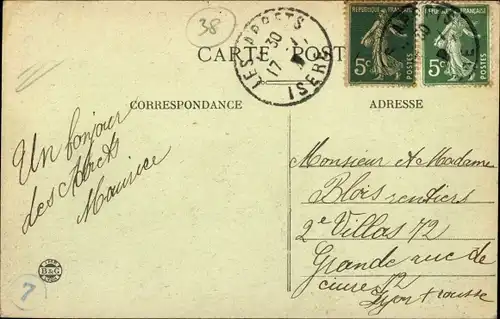 38
CARTE POST
LES ABRETS
ISERE
17
30
RÉPUBLIQUE FRANÇAISE
5c
POSTES
5c
POSTES
CORRESPONDANCE
ADRESSE
Un bonjour
des Abrets
Maurice
Monsieur et Madame
Blois rentiers
2e Villas 72
Grande rue de
72
Lyon + rousse
B&G
7